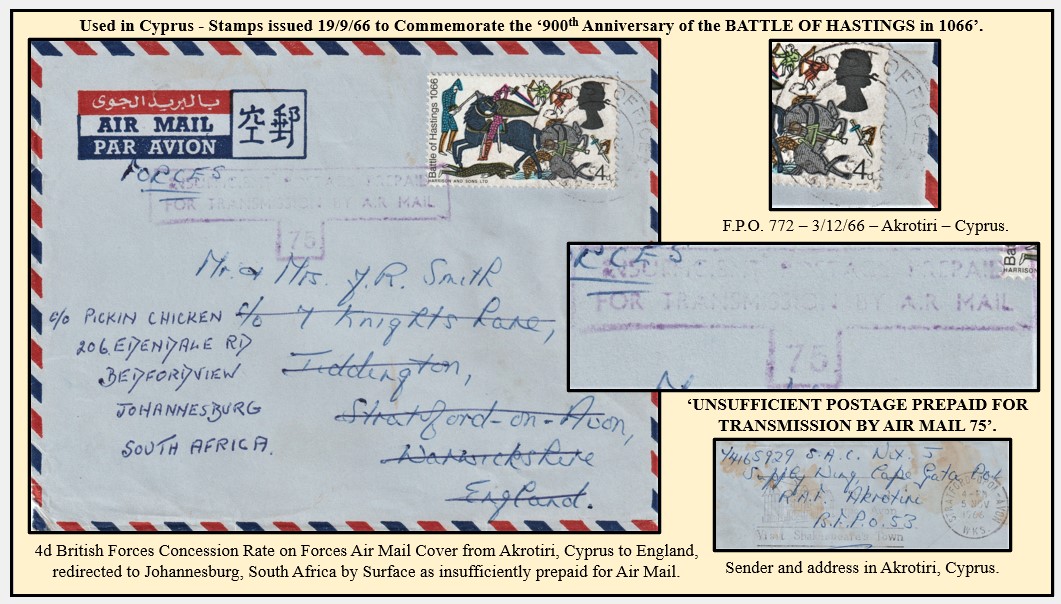 Used in Cyprus - Stamps issued 19/9/66 to Commemorate the ‘900th Anniversary of the BATTLE OF HASTINGS in 1066’.
بالبريد الجوى
AIR MAIL
PAR AVION
空郵
Battle of Hastings 1066
HARRISON AND SONS LTD
4d
OFFICE
FORCES
INSUFFICIENT POSTAGE PREPAID
FOR TRANSMISSION BY AIR MAIL
75
Mr. & Mrs. J.R. Smith
c/o 7 Knights Lane,
Tiddington,
Stratford-on-Avon,
Warwickshire
England.
c/o PICKIN CHICKEN
206 EDENDALE RD
BEDFORDVIEW
JOHANNESBURG
SOUTH AFRICA.
4d British Forces Concession Rate on Forces Air Mail Cover from Akrotiri, Cyprus to England,
redirected to Johannesburg, South Africa by Surface as insufficiently prepaid for Air Mail.
OFFICE
4d
F.P.O. 772 – 3/12/66 – Akrotiri – Cyprus.
RCES
Ba
HARRISON
INSUFFICIENT POSTAGE PREPAID
FOR TRANSMISSION BY AIR MAIL
75
‘UNSUFFICIENT POSTAGE PREPAID FOR
TRANSMISSION BY AIR MAIL 75’.
Y4165929 S.A.C. Nix. J
Supply Wing, Cape Gata
R.A.F. Akrotiri
B.F.P.O. 53
Visit Shakespeare's Town
Sender and address in Akrotiri, Cyprus.